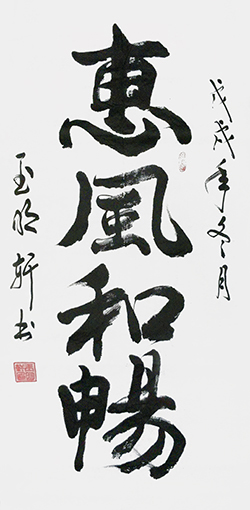 戊戌年冬月
惠風和暢
玉明軒书